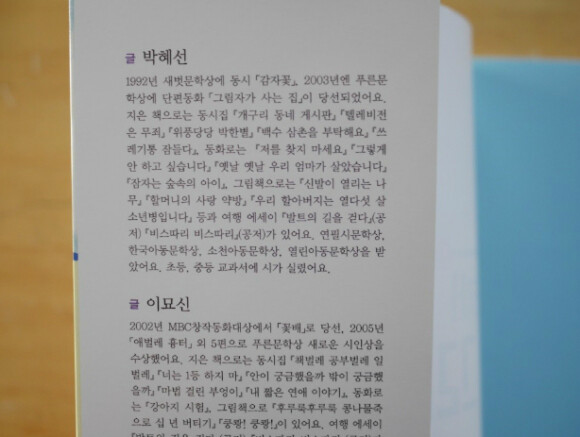 글 박혜선
1992년 새벗문학상에 동시 『감자꽃』, 2003년엔 푸른문
학상에 단편동화 『그림자가 사는 집』이 당선되었어요.
지은 책으로는 동시집 『개구리 동네 게시판』 『텔레비전
은 무죄』 『위풍당당 박한별』 『백수 삼촌을 부탁해요』 『쓰
레기통 잠들다』, 동화로는 『저를 찾지 마세요』 『그렇게
안 하고 싶습니다』 『옛날 옛날 우리 엄마가 살았습니다』
『잠자는 숲속의 아이』, 그림책으로는 『신발이 열리는 나
무』 『할머니의 사랑 약방』 『우리 할아버지는 열다섯 살
소년병입니다』 등과 여행 에세이 『발트의 길을 걷다』(공
저) 『비스따리 비스따리』(공저)가 있어요. 연필시문학상,
한국아동문학상, 소천아동문학상, 열린아동문학상을 받
았어요. 초등, 중등 교과서에 시가 실렸어요.
글 이묘신
2002년 MBC창작동화대상에서 『꽃배』로 당선, 2005년
『애벌레 흉터』 외 5편으로 푸른문학상 새로운 시인상을
수상했어요. 지은 책으로는 동시집 『책벌레 공부벌레 일
벌레』 『너는 1등 하지 마』 『안이 궁금했을까 밖이 궁금했
을까』 『마법 걸린 부엉이』 『내 짧은 연애 이야기』, 동화로
는 『강아지 시험』, 그림책으로 『후루룩후루룩 콩나물죽
으로 십 년 버티기』 『쿵쾅! 쿵쾅!』이 있어요. 여행 에세이